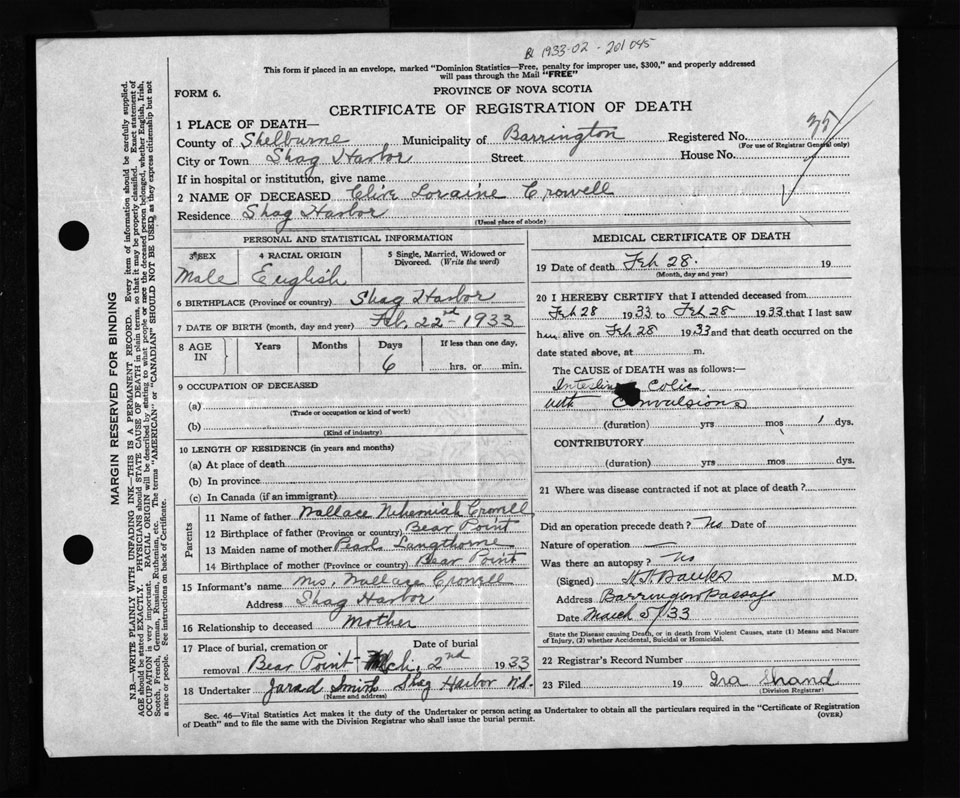 1933-02-201045
This form if placed in an envelope, marked "Dominion Statistics—Free, penalty for improper use, $300," and properly addressed
will pass through the Mail "FREE"
FORM 6.
PROVINCE OF NOVA SCOTIA
CERTIFICATE OF REGISTRATION OF DEATH
1 PLACE OF DEATH—
County of Shelburne Municipality of Barrington Registered No.
(For use of Registrar General only)
City or Town Shag Harbor Street House No.
If in hospital or institution, give name
2 NAME OF DECEASED Clive Loraine Crowell
Residence Shag Harbor
(Usual place of abode)
PERSONAL AND STATISTICAL INFORMATION
3 SEX 4 RACIAL ORIGIN 5 Single, Married, Widowed or
Divorced. (Write the word)
Male English
6 BIRTHPLACE (Province or country) Shag Harbor
7 DATE OF BIRTH (month, day and year) Feb, 22nd-1933
8 AGE IN Years Months Days If less than one day,
6 hrs. or min.
9 OCCUPATION OF DECEASED
(a)
(Trade or occupation or kind of work)
(b)
(Kind of industry)
10 LENGTH OF RESIDENCE (in years and months)
(a) At place of death
(b) In province
(c) In Canada (if an immigrant)
Parents
11 Name of father Wallace Nehemiah Crowell
12 Birthplace of father (Province or country) Bear Point
13 Maiden name of mother Pearl Langthorne
14 Birthplace of mother (Province or country) Bear Point
15 Informant's name Mrs. Wallace Crowell
Address Shag Harbor
16 Relationship to deceased Mother
17 Place of burial, cremation or Date of burial
removal Bear Point Mch, 2nd 1933
18 Undertaker Jarad Smith Shag Harbor N.S.
(Name and address)
MEDICAL CERTIFICATE OF DEATH
19 Date of death Feb 28. 19
(Month, day and year)
20 I HEREBY CERTIFY that I attended deceased from
Feb 28 1933 to Feb 28 1933 that I last saw
him alive on Feb 28 1933 and that death occurred on
date stated above, at m.
The CAUSE of DEATH was as follows:—
Intestinal Colic
with Convulsions
(duration) yrs mos 1 dys.
CONTRIBUTORY
(duration) yrs mos dys.
21 Where was disease contracted if not at place of death?
Did an operation precede death? No Date of
Nature of operation —
Was there an autopsy? No
(Signed) Banks M.D.
Address Barrington Passage
Date March 5/33
State the Disease causing Death, or in death from Violent Causes, state (1) Means and Nature
of Injury, (2) whether Accidental, Suicidal or Homicidal.
22 Registrar's Record Number
23 Filed 19 Ira Shand
(Division Registrar)
Sec. 46—Vital Statistics Act makes it the duty of the Undertaker or person acting as Undertaker to obtain all the particulars required in the "Certificate of Registration
of Death" and to file the same with the Division Registrar who shall issue the burial permit.
(OVER)
MARGIN RESERVED FOR BINDING
N.B.—WRITE PLAINLY WITH UNFADING INK—THIS IS A PERMANENT RECORD. Every item of information should be carefully supplied.
AGE should be stated EXACTLY. PHYSICIANS should STATE CAUSE OF DEATH in plain terms, so that it may be properly classified. Exact statement of
OCCUPATION is very important. RACIAL ORIGIN will be described by stating to what people or race the deceased person belonged, whether English, Irish,
Scotch, French, German, Russian, Ruthenian, etc. The terms "AMERICAN" or "CANADIAN" SHOULD NOT BE USED, as they express citizenship but not
a race or people. See instructions on back of Certificate.